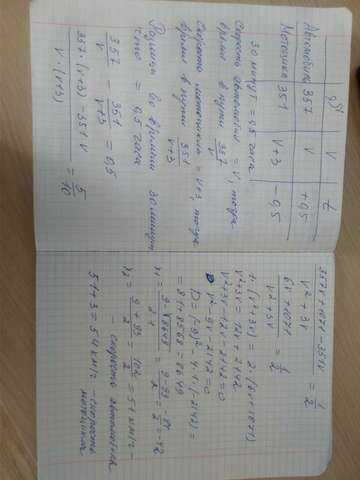 S V t
Автомобиль 357 V +0,5
Мотоцикл 351 V+3 -0,5
30 минут = 0,5 часа
Скорость автомобиля = V, тогда
время в пути 357/V
Скорость мотоцикла = V+3, тогда
время в пути 351/V+3
Разница во времени 30 минут
= 0,5 часа
357/V - 351/V+3 = 0,5
357·(V+3) - 351V / V·(V+3) = 5/10
357V+1071-351V / V²+3V = 1/2
6V+1071 / V²+3V = 1/2
1·(V²+3V) = 2·(6V+1071)
V²+3V = 12V+2142
V²+3V-12V-2142=0
V²-9V-2142=0
D=(-9)²-4·1·(-2142)=
= 81+8568=8649
x₁ = 9-√8649 / 2·1 = 9-93 / 2 = -42
x₂ = 9+93 / 2 = 102 / 2 = 51 км/ч -
- скорость автомобиля
51+3=54 км/ч - скорость
мотоцикла.